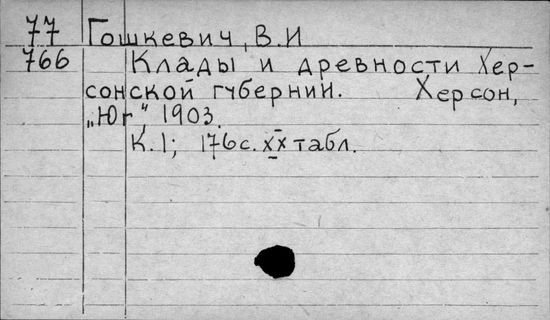 77 Гошкевич, В.И
766 Клады и древности Хер-
сонской губернии. Херсон,
„Юг“, 1903.
К.1; 176с. XX табл.